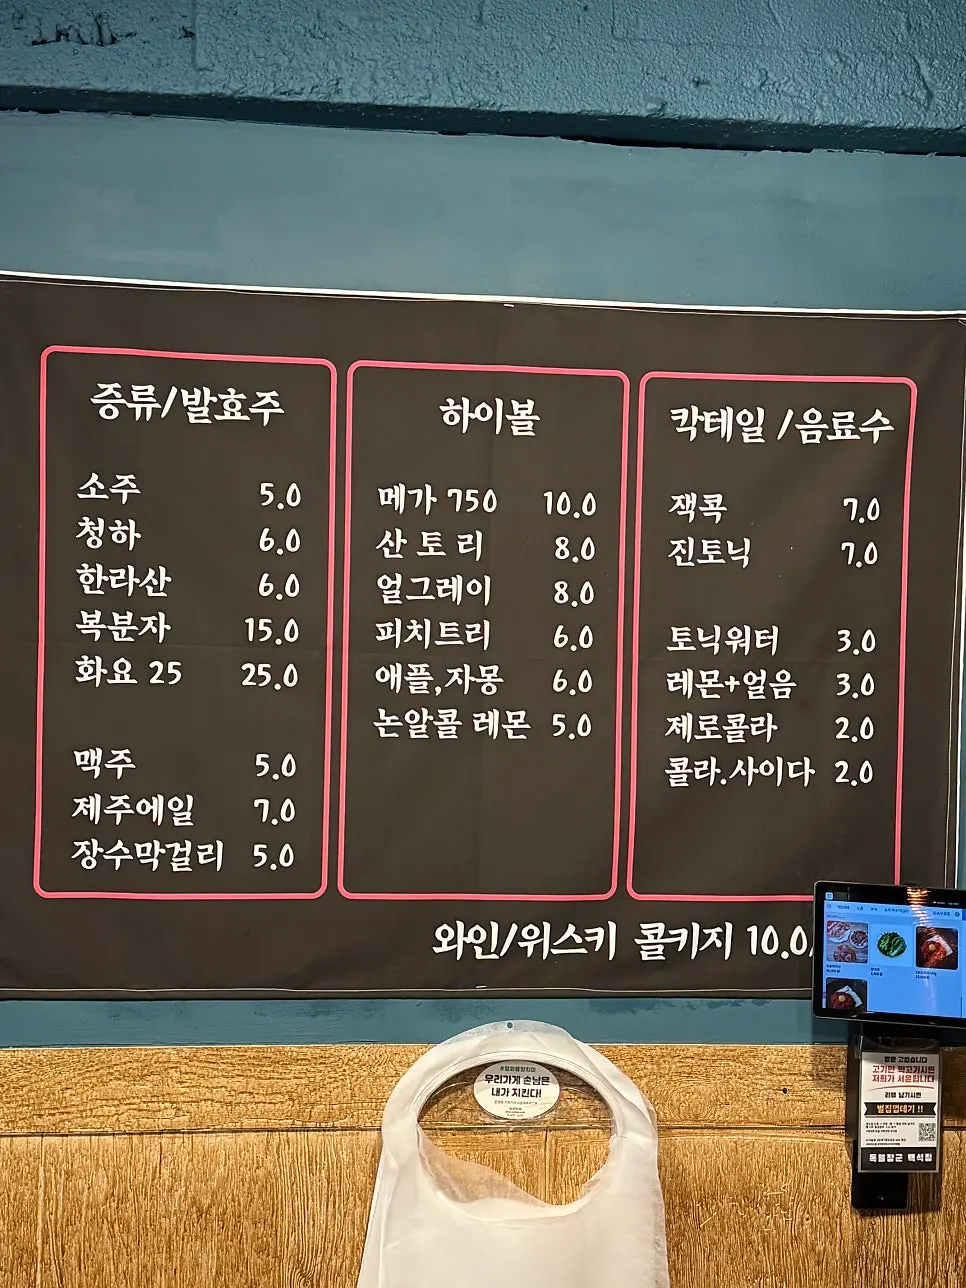 증류/발효주
소주 5.0
청하 6.0
한라산 6.0
복분자 15.0
화요 25 25.0
맥주 5.0
제주에일 7.0
장수막걸리 5.0
하이볼
메가 750 10.0
산토리 8.0
얼그레이 8.0
피치트리 6.0
애플,자몽 6.0
논알콜 레몬 5.0
칵테일 /음료수
잭콕 7.0
진토닉 7.0
토닉워터 3.0
레몬+얼음 3.0
제로콜라 2.0
콜라.사이다 2.0
와인/위스키 콜키지 10.0
우리가게 손님은
내가 지킨다!
방문 고맙습니다
고기만 먹고가시면
저희가 서운합니다
리뷰 남기시면
벌집껍데기 !!
독불장군 백석점